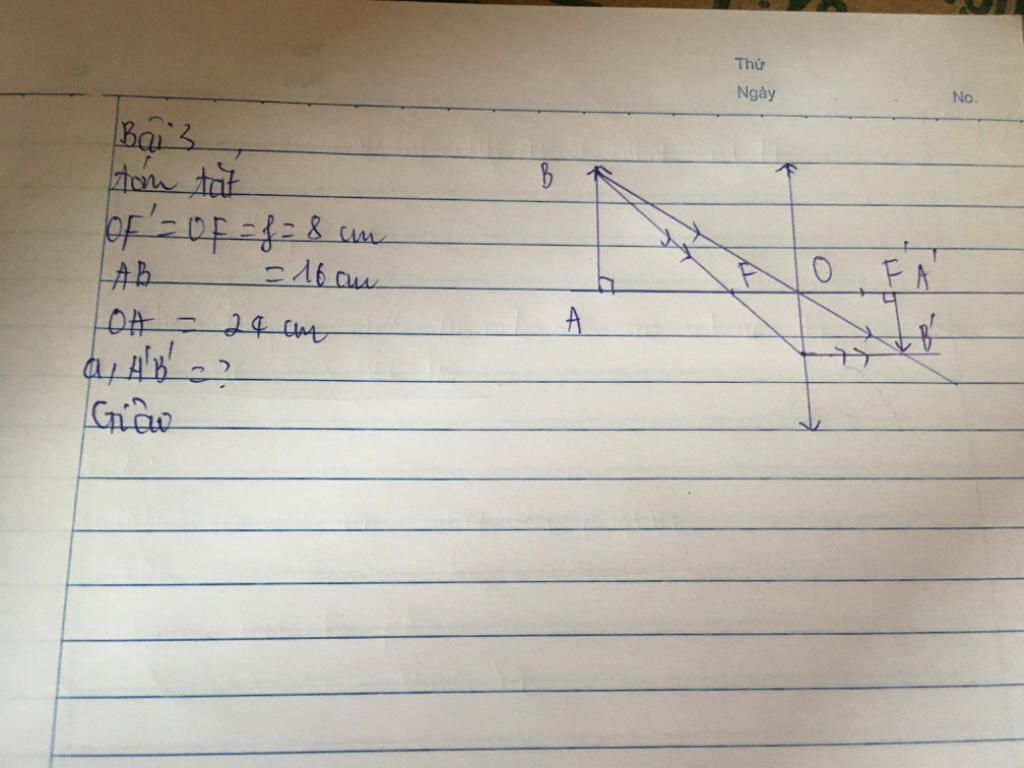 Thứ
Ngày
No.
Bài 3
tóm tắt
OF' = OF = f = 8 cm
AB = 16 cm
OA = 24 cm
a, A'B' = ?
Giải
B
F
O
F'
A'
A
B'